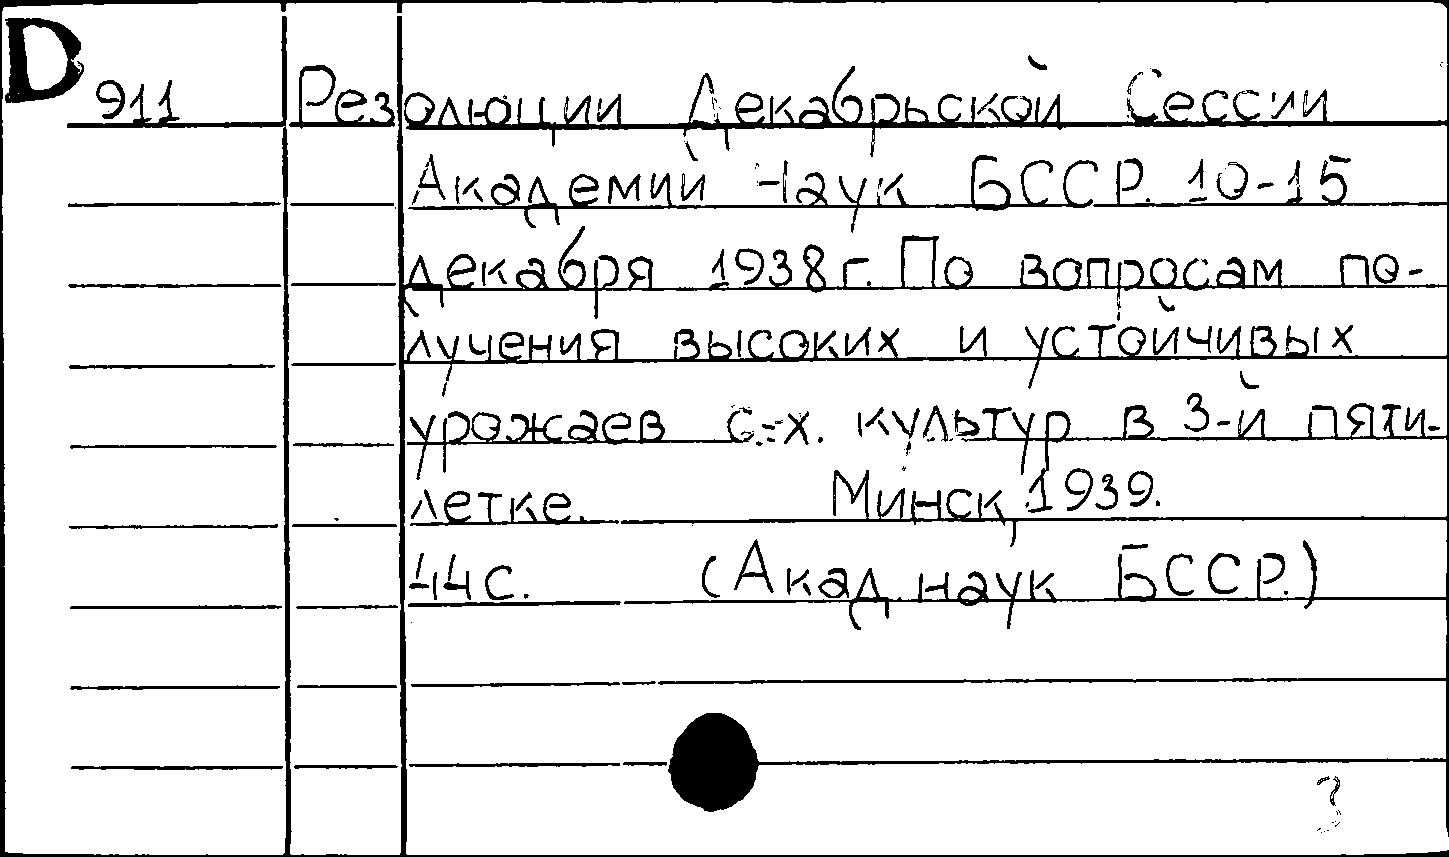 D 911 Резолюции Декабрьской Сессии
Академий Наук БССР. 10-15
декабря 1938 г. По вопросам по-
лучения высоких и устойчивых
урожаев с.-х. культур в 3-й пяти-
летке. Минск, 1939.
44 с. (Акад. наук БССР.)
3